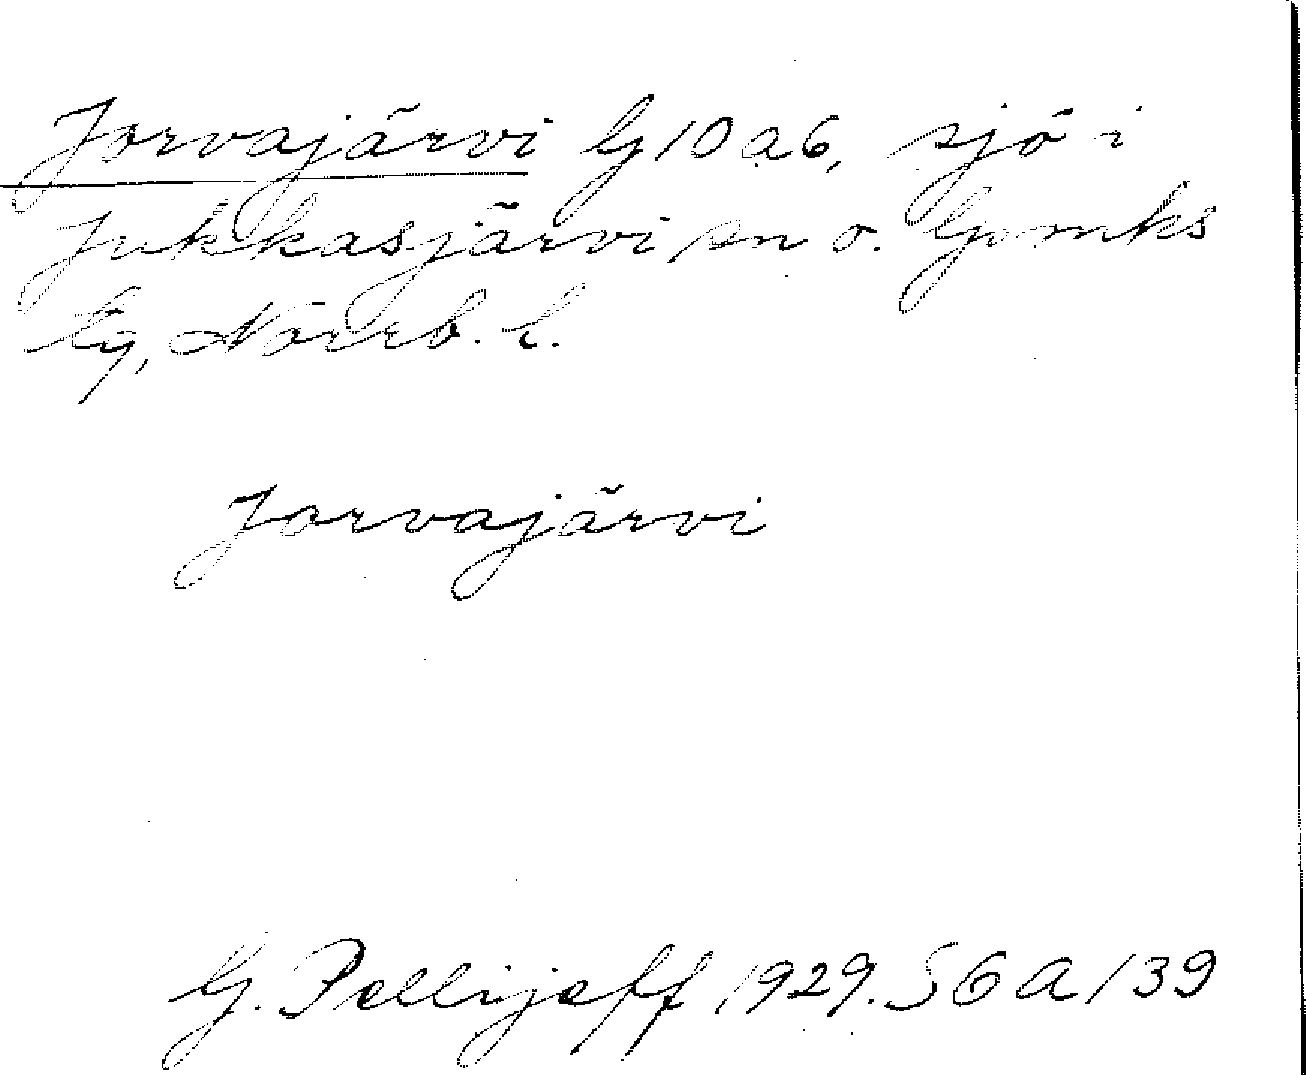 Jorvajärvi G10a6, sjö i
Jukkasjärvi sn o. Gvmks
lg, Norrb. l.
Jorvajärvi
G. Pellijeff 1929. S6a/39